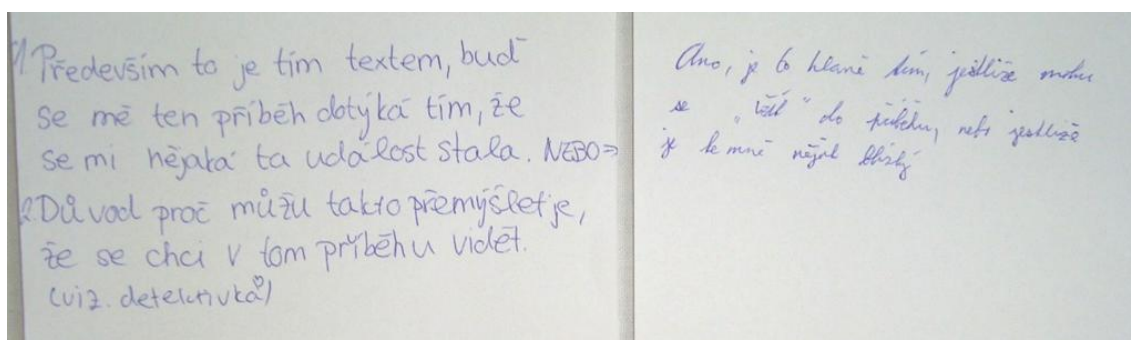 1) Především to je tím textem, buď
se mě ten příběh dotýká tím, že
se mi nějaká ta událost stala. NEBO⇒
2. Důvod proč můžu takto přemýšlet je,
že se chci v tom příběhu vidět.
(viz. detektivka♡)
Ano, je to hlavně tím, jestliže mohu
se „vžít" do příběhu, nebo jestliže
je ke mně nějak blízký